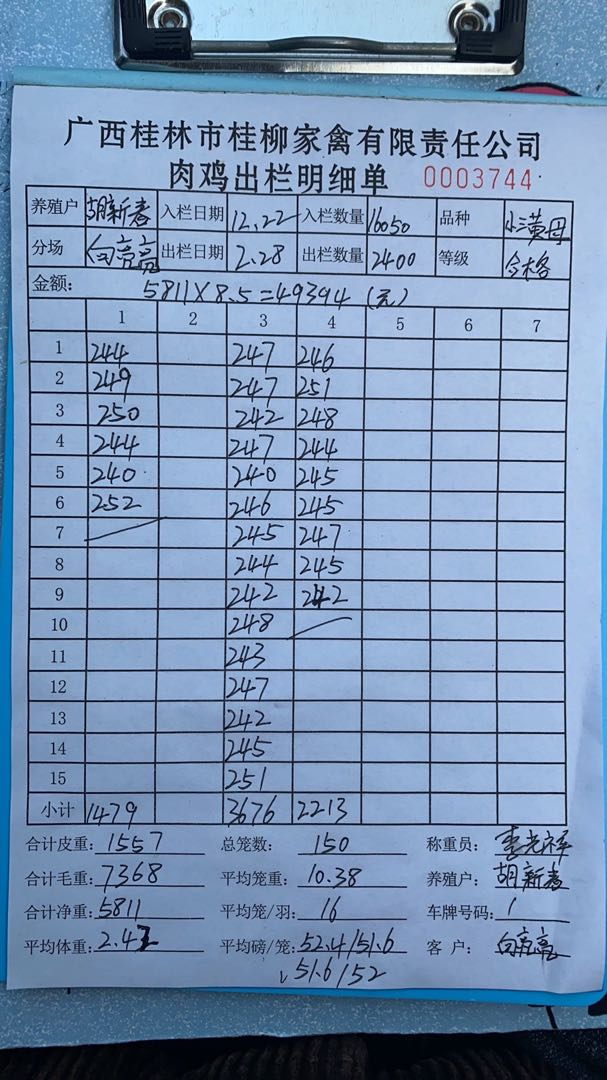 广西桂林市桂柳家禽有限责任公司
肉鸡出栏明细单 0003744
养殖户 胡新春 入栏日期 12.22 入栏数量 16050 品种 小黄母
分场 向亮亮 出栏日期 2.28 出栏数量 2400 等级 合格
金额: 5811×8.5=49394(元)
1 2 3 4 5 6 7
1 244 247 246
2 249 247 251
3 250 242 248
4 244 247 244
5 240 240 245
6 252 246 245
7 245 247
8 244 245
9 242 242
10 248
11 243
12 247
13 242
14 245
15 251
小计 1479 3676 2213
合计皮重: 1557 总笼数: 150 称重员: 李光祥
合计毛重: 7368 平均笼重: 10.38 养殖户: 胡新春
合计净重: 5811 平均笼/羽: 16 车牌号码: 1
平均体重: 2.42 平均磅/笼: 52.4/51.6 客户: 向亮亮
51.6/52